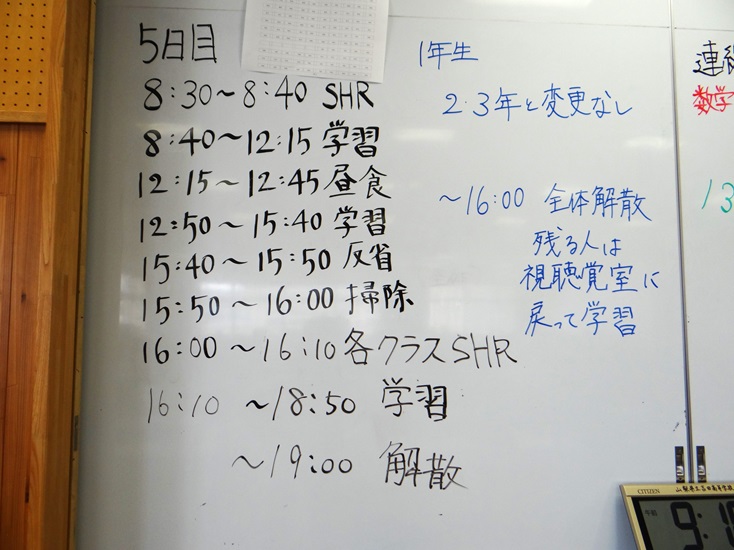 5日目
8:30～8:40 SHR
8:40～12:15 学習
12:15～12:45 昼食
12:50～15:40 学習
15:40～15:50 反省
15:50～16:00 掃除
16:00～16:10 各クラスSHR
16:10～18:50 学習
～19:00 解散
1年生
2・3年と変更なし
～16:00 全体解散
残る人は
視聴覚室に
戻って学習
数学
13
CITIZEN
午前